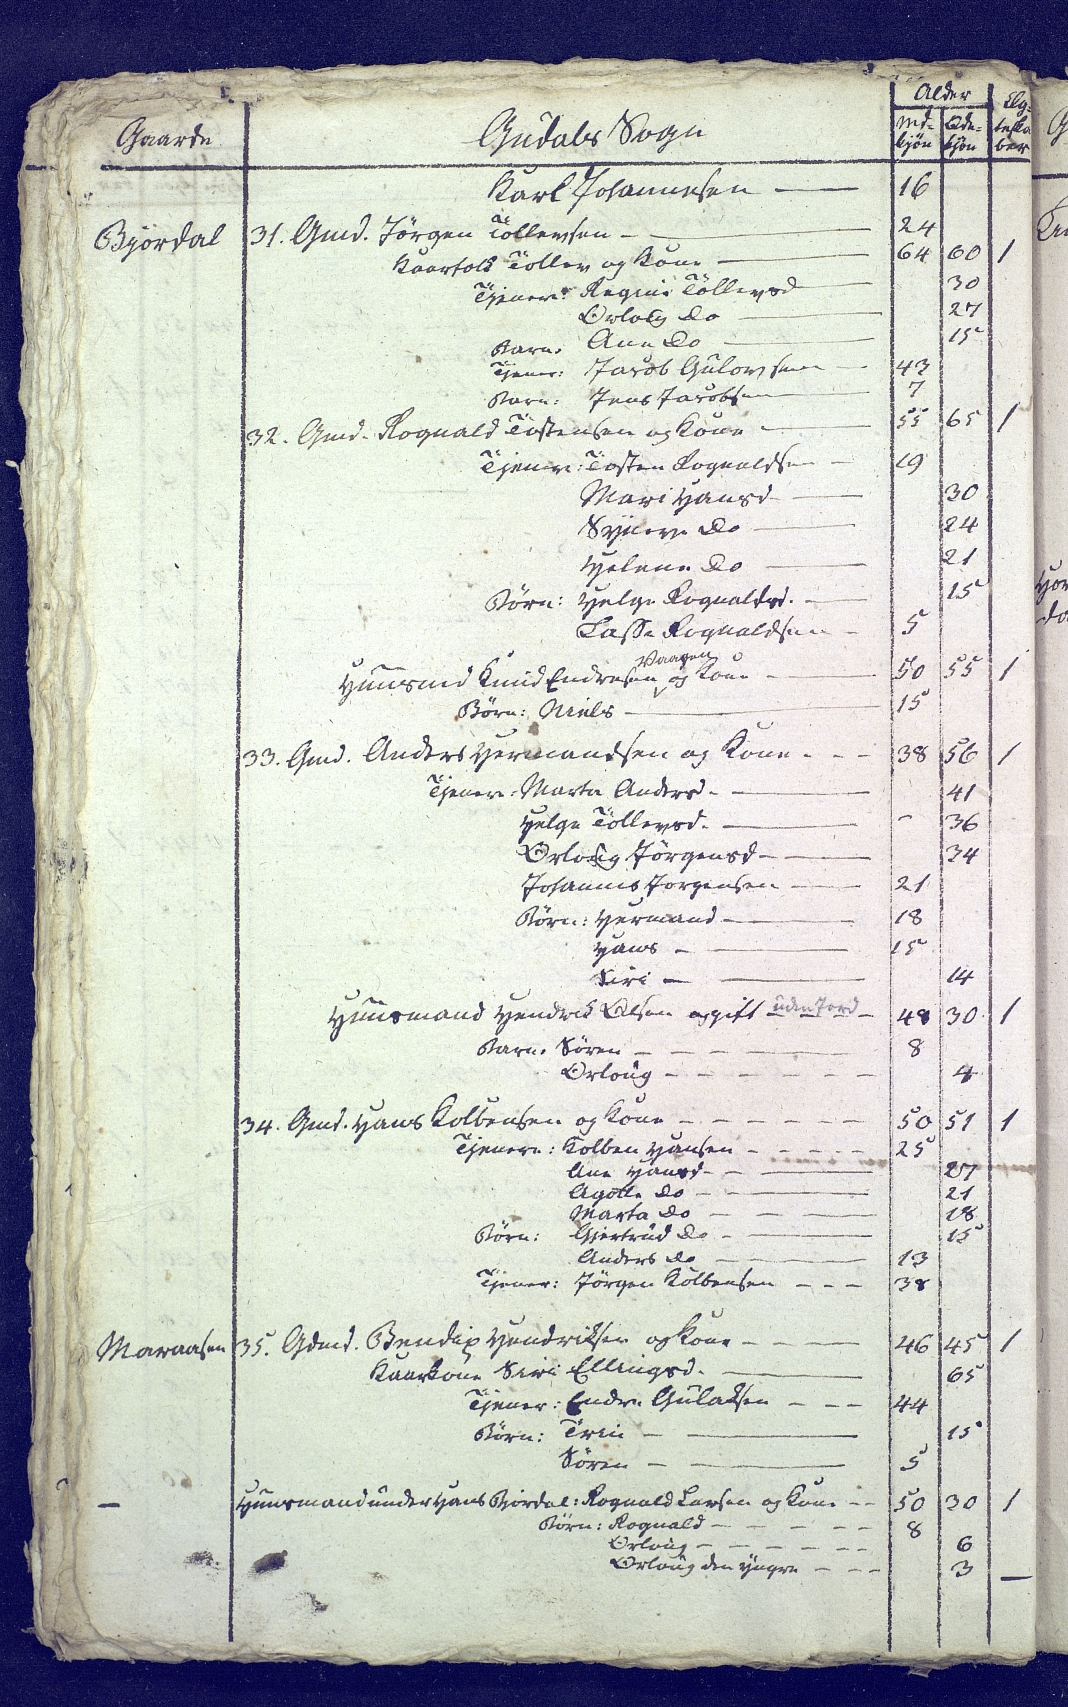 Gaarde Gudals Sogn Alder Mdkjön Qdekjön Egteskaber
Karl Johannesen 16
Björdal 31. Gmd. Jörgen Töllevsen 24
Kaarfolk Tollev og Kone 64 60 1
Tjener: Regine Töllevsd 30
Orloug Do 27
Barn: Ane Do 15
Tjener: Jacob Gulowsen 43
Barn: Jens Jacobsen 7
32. Gmd. Rognald Tostensen og Kone 55 65 1
Tjener: Tosten Rognaldsen 19
Mari Hansd 30
Synneve Do 24
Helene Do 21
Börn: Helge Rognaldsd. 15
Lasse Rognaldsen 5
Huusmd Knud Endresen Vaagen og Kone 50 55 1
Börn: Niels 15
33. Gmd. Anders Hermandsen og Kone 38 56 1
Tjener: Marta Andersd. 41
Helge Töllevsd. - 36
Orloug Jörgensd 34
Johannes Jorgensen 21
Börn: Hermand 18
Hans 15
Siri 14
Huusmand Hendrick Olsen og gift uden Jord 48 30 1
Barn: Sören 8
Orloug 4
34. Gmd. Hans Kolbensen og Kone 50 51 1
Tjenere: Kolben Hansen 25
Ane Hansd. 27
Agotte Do 21
Marta Do 18
Börn: Giertrud Do 15
Anders Do 13
Tjener: Jörgen Kolbensen 38
Maraasen 35. Gdmd. Bendix Hendriksen og Kone 46 45 1
Kaarkone Siri Ellingsd. 65
Tjener: Endre Gulaksen 44
Börn: Trin 15
Sören 5
— Huusmand under Hans Bjordal: Rognald Larsen og Kone 50 30 1
Börn: Rognald 8
Orloug 6
Orloug den yngre 3